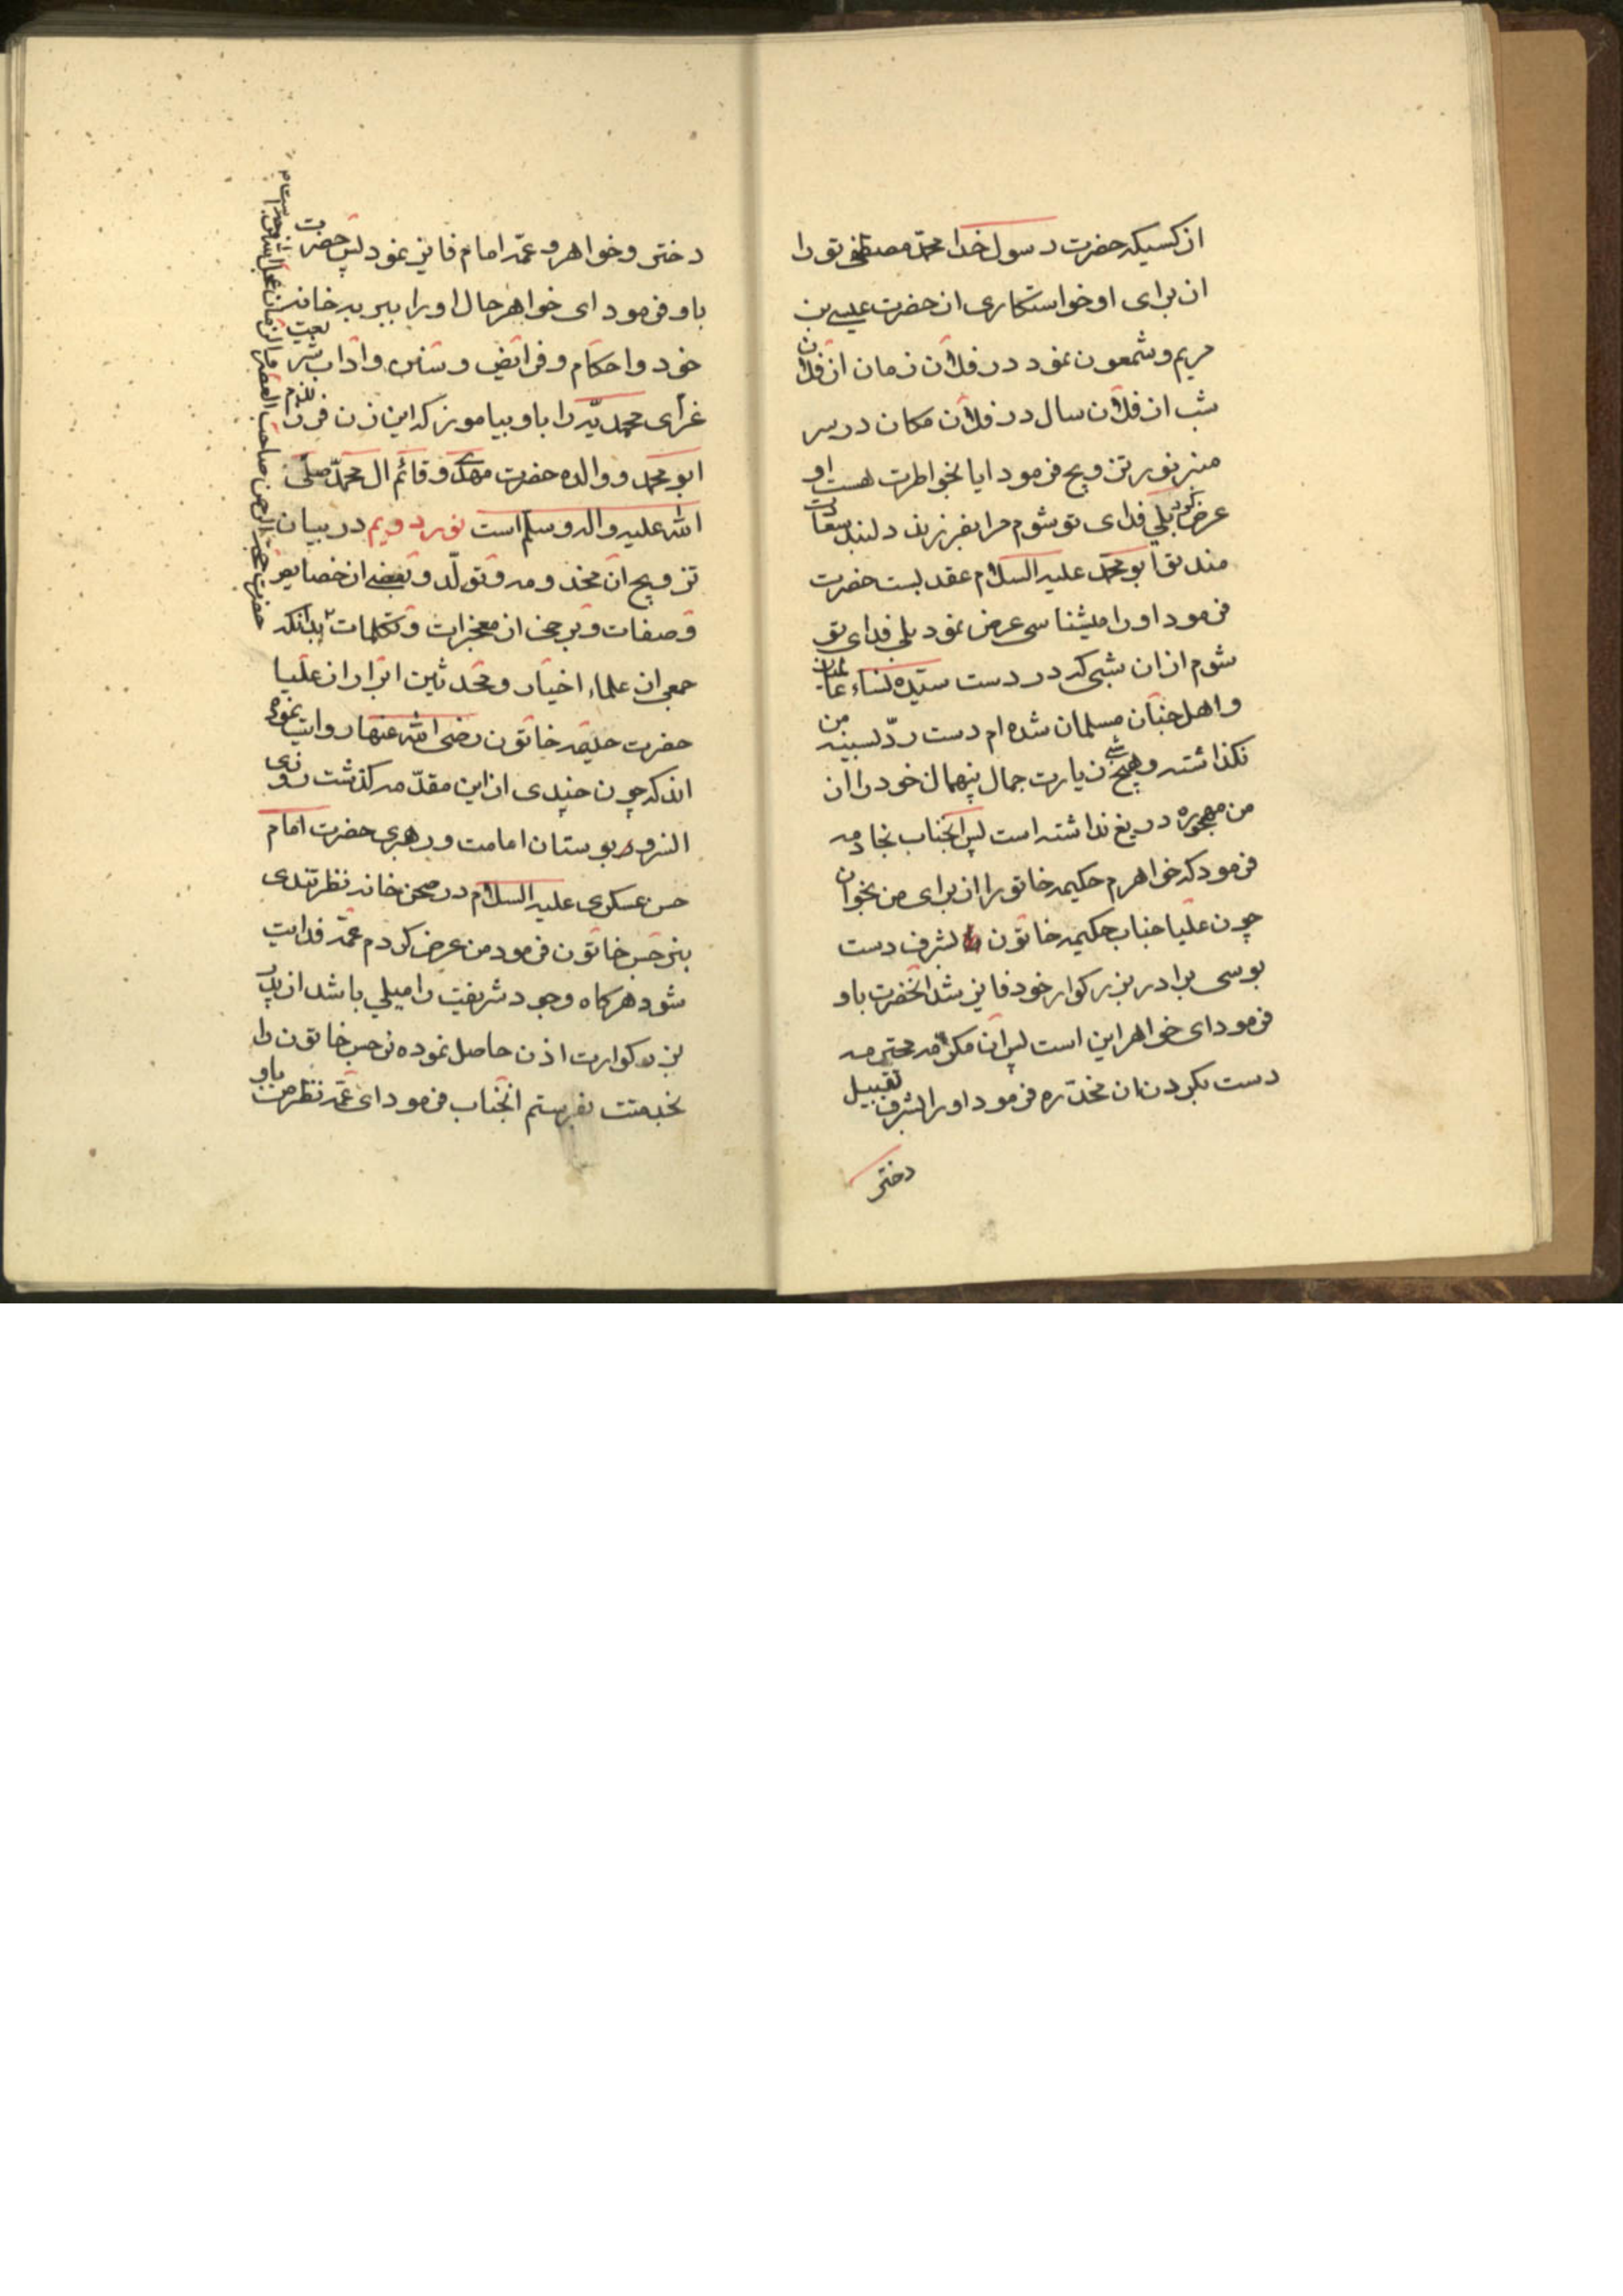 از کسیکه حضرت رسول خدا محمد مصطفی تو را
از برای او خواستکاری از حضرت عیسی بن
مریم و شمعون نمود در فلان زمان از فلان
شب از فلان سال در فلان مکان در سر
منبر نور تزویج فرمود ایا بخواطرت هست او
عرض کرد بلی فدای تو شوم مرا بفرزند دلبند سعادت
مند تو ابو محمد علیه السلام عقد بست حضرت
فرمود او را میشناسی عرض نمود بلی فدای تو
شوم از ان شبی که در دست سیده نساء عالمیان
و اهل جنان مسلمان شده ام دست رد بسینه من
نکذاشته و هیچ شب زیارت جمال بیهمال خود را از
من مهجوره دریغ نداشته است پس انجناب بخادمه
فرمود که خواهرم حکیمه خاتورا از برای من بخوان
چون علیا جناب حکیمه خاتون بشرف دست
بوسی برادر بزرکوار خود فایز شد انحضرت باو
فرمود ای خواهر این است پس ان مکرمه محترمه
دست بکردن ان مخدره فرمود او را بشرف تقبیل
دختر
دختر و خواهر و عمه امام فایز نمود پس حضرت
باو فرمود ای خواهر حال او را ببر به خانه
خود و احکام و فرائض و سنن و اداب شریعت
غرای محمدیه را باو بیاموز که این زن فرزندم
ابو محمد و والده حضرت مهدی و قائم ال محمد صلی
الله علیه واله وسلم است نور دویم در بیان
تزویج ان مخدومه و تولد و بعضی از خصایص
و صفات و برخی از معجزات و تکلمات بدانکه
جمعی از علماء اخیار و محدثین ابرار از علیا
حضرت حلیمه خاتون رضی الله عنها روایت نموده
اند که چون چندی از این مقدمه کذشت روزی
السرو بوستان امامت و رهبری حضرت امام
حسن عسکری علیه السلام در صحن خانه نظر تندی
بنرجس خاتون فرمود من عرض کردم عمه فدایت
شود هرکاه وجود شریفت را میلی باشد از پدر
بزرکوارت اذن حاصل نموده نرجس خاتون را
بخدمتت بفرستم انجناب فرمود ای عمه نظر من باو
حضرت حجة الرحمن صاحب العصر والزمان عجل الله فرجه